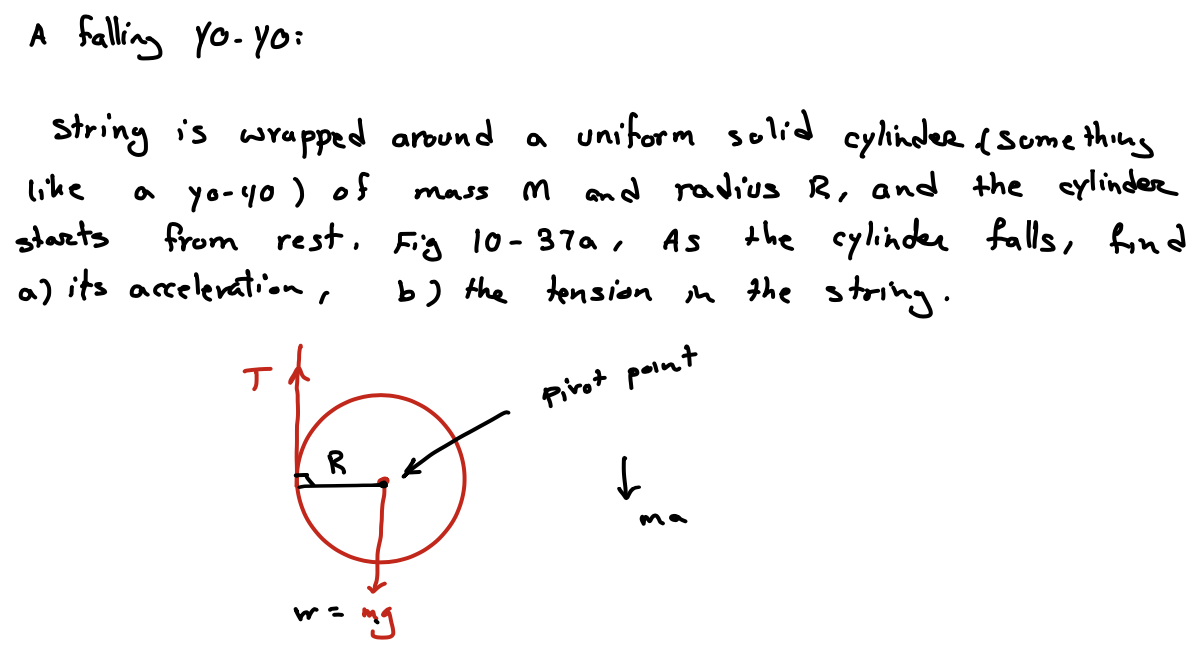 A falling yo-yo:
String is wrapped around a uniform solid cylinder (something
like a yo-yo) of mass M and radius R, and the cylinder
starts from rest. Fig 10-37a, As the cylinder falls, find
a) its acceleration, b) the tension in the string.
T
pivot point
R
ma
w = mg